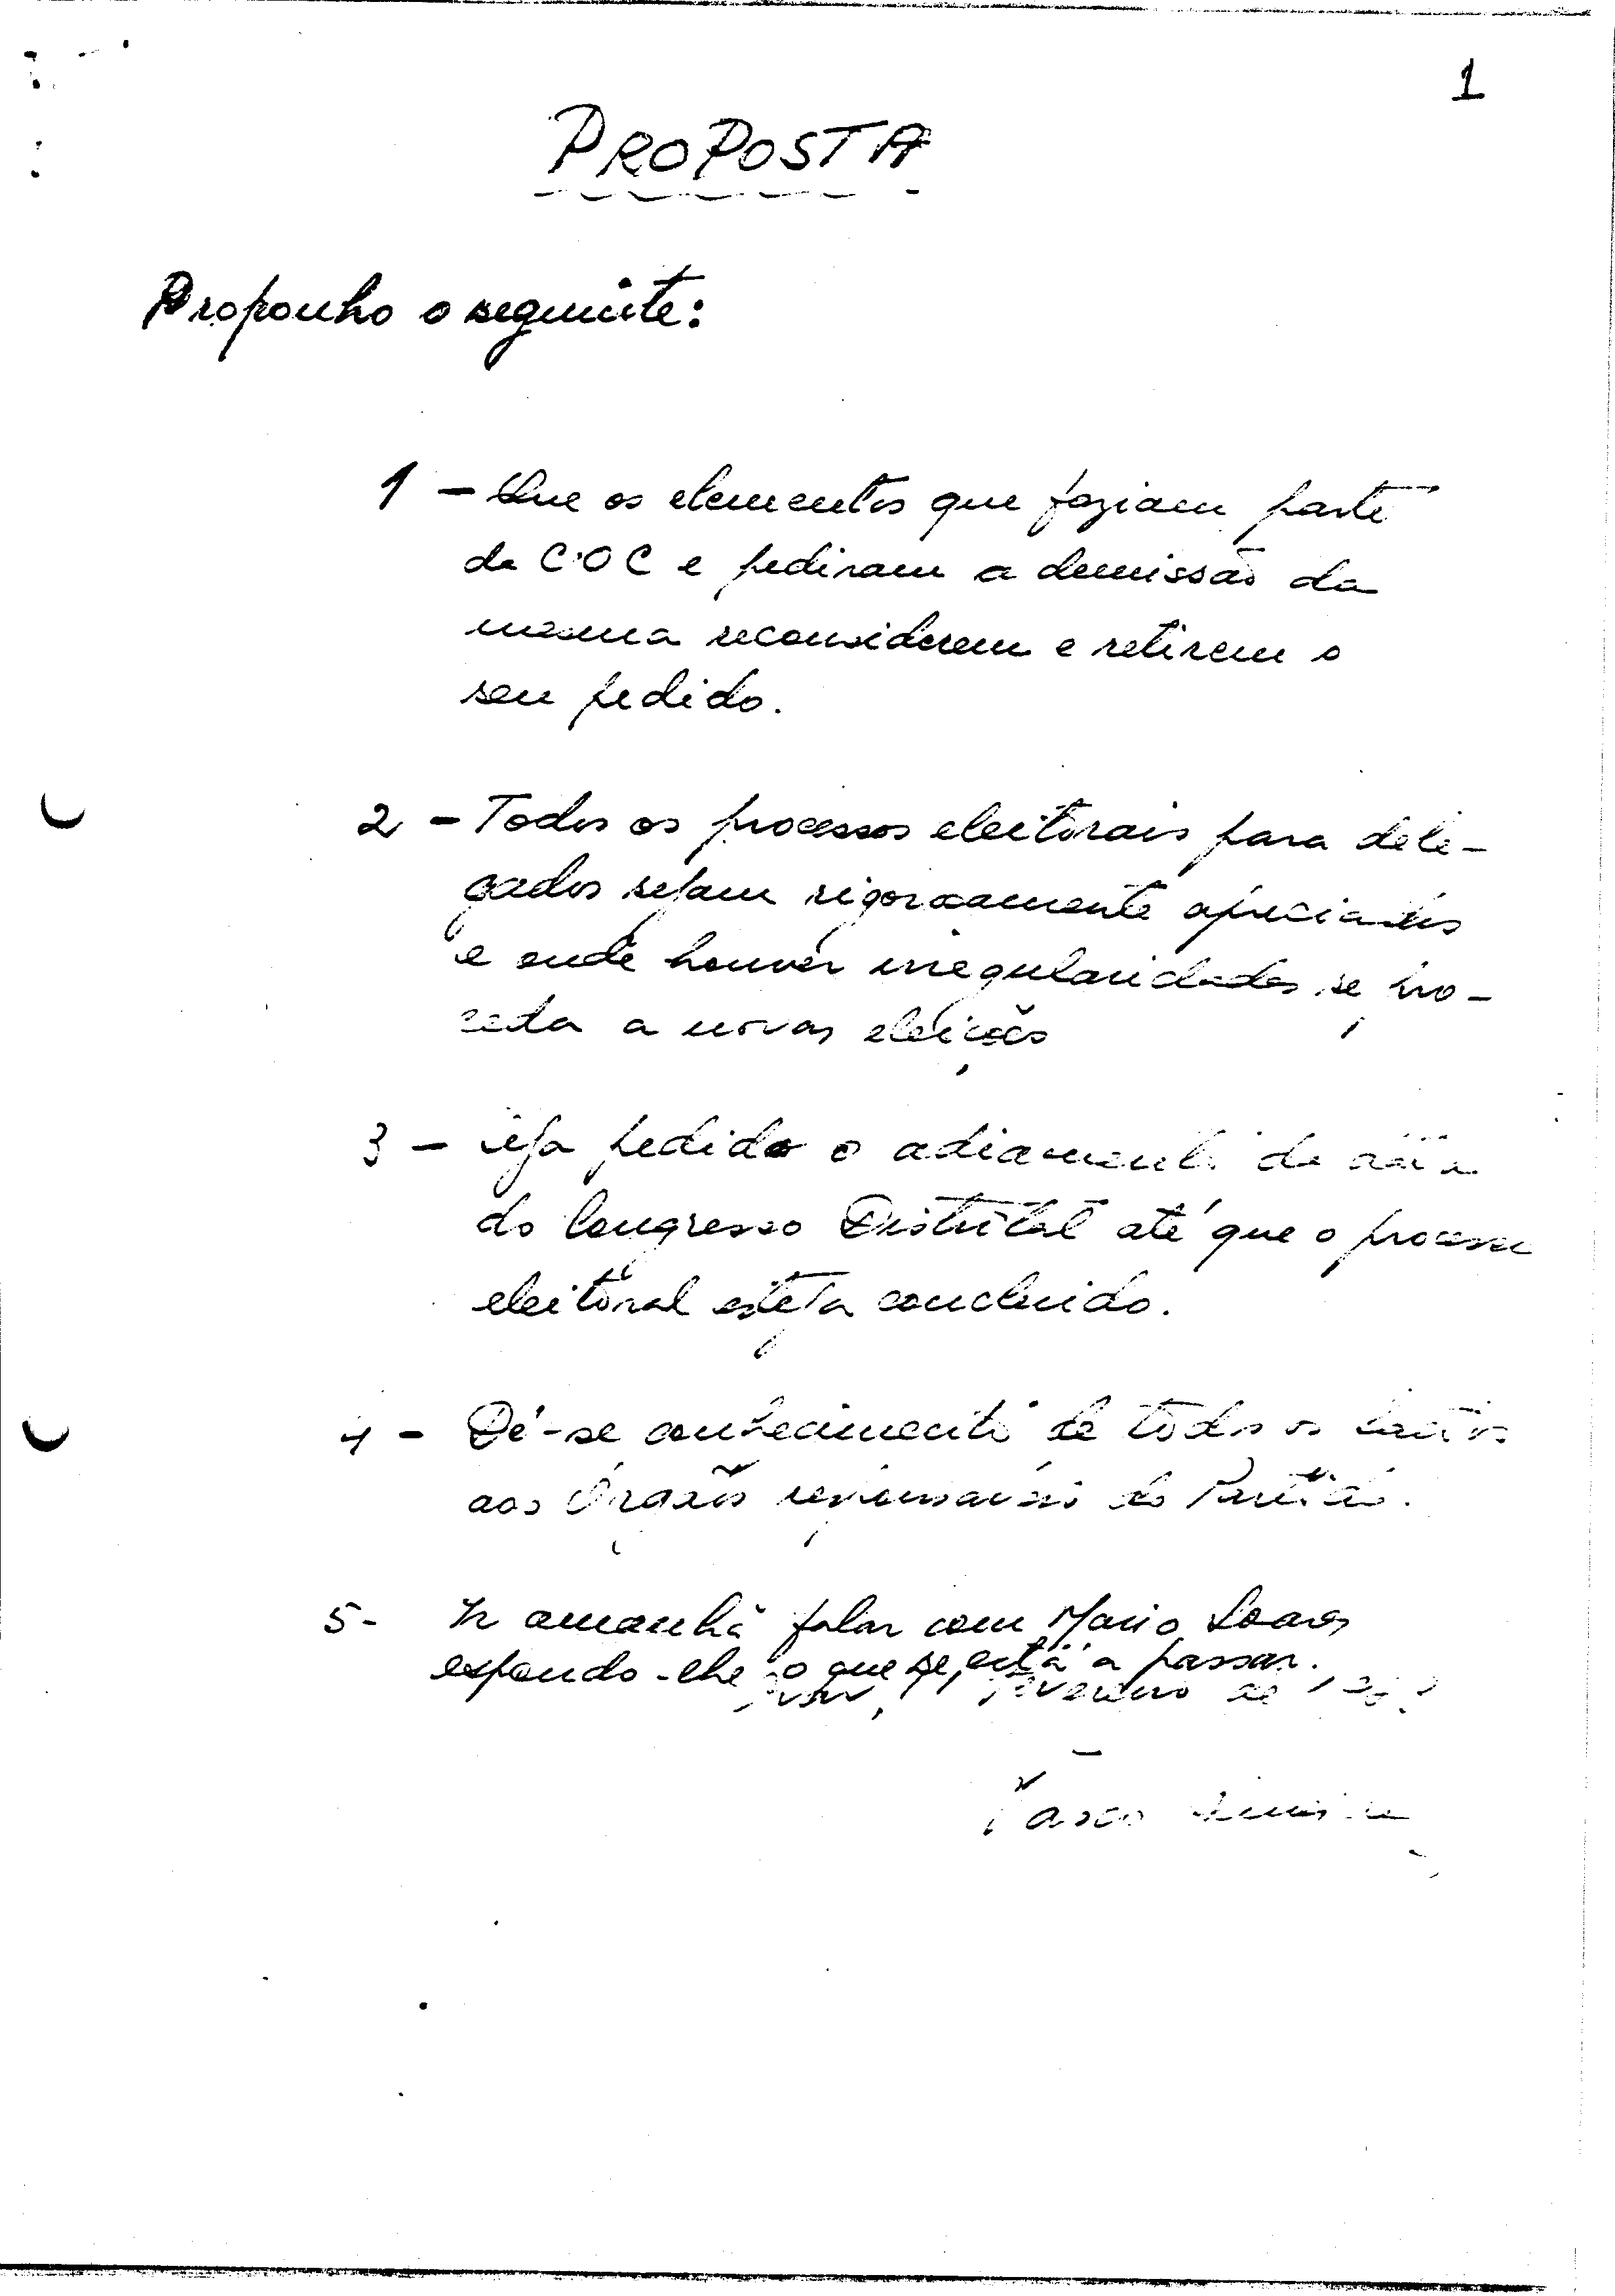 1
PROPOSTA
Proponho o seguinte:
1 - Que os elementos que faziam parte
da COC e pediram a demissão da
mesma reconsiderem e retirem o
seu pedido.
2 - Todos os processos eleitorais para dele-
gados sejam rigorosamente apreciados
e onde houver irregularidades se pro-
ceda a novas eleições
3 - seja pedido o adiamento da data
do Congresso Distrital até que o processo
eleitoral esteja concluido.
4 - Dê-se conhecimento de todos os factos
aos Órgãos responsáveis do Partido.
5 - Ir amanhã falar com Mario Soares
expondo-lhe o que se está a passar.
Fevereiro de
Vasco